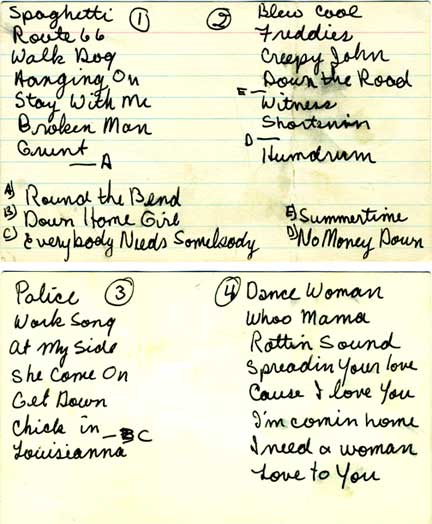 Spaghetti ①
Route 66
Walk Dog
Hanging On
Stay With Me
Broken Man
Grunt
— A
② Blew Cool
Freddies
Creepy John
Down the Road
E —
Witness
Shortenin
D —
Humdrum
A) Round the Bend
B) Down Home Girl
C) Everybody Needs Somebody
E) Summertime
D) No Money Down
Police ③
Work Song
At My Side
She Come On
Get Down
Chick in
— C
Louisianna
④ Dance Woman
Whoo Mama
Rottin Sound
Spreadin Your love
Cause I love You
I'm comin home
I need a woman
Love to You